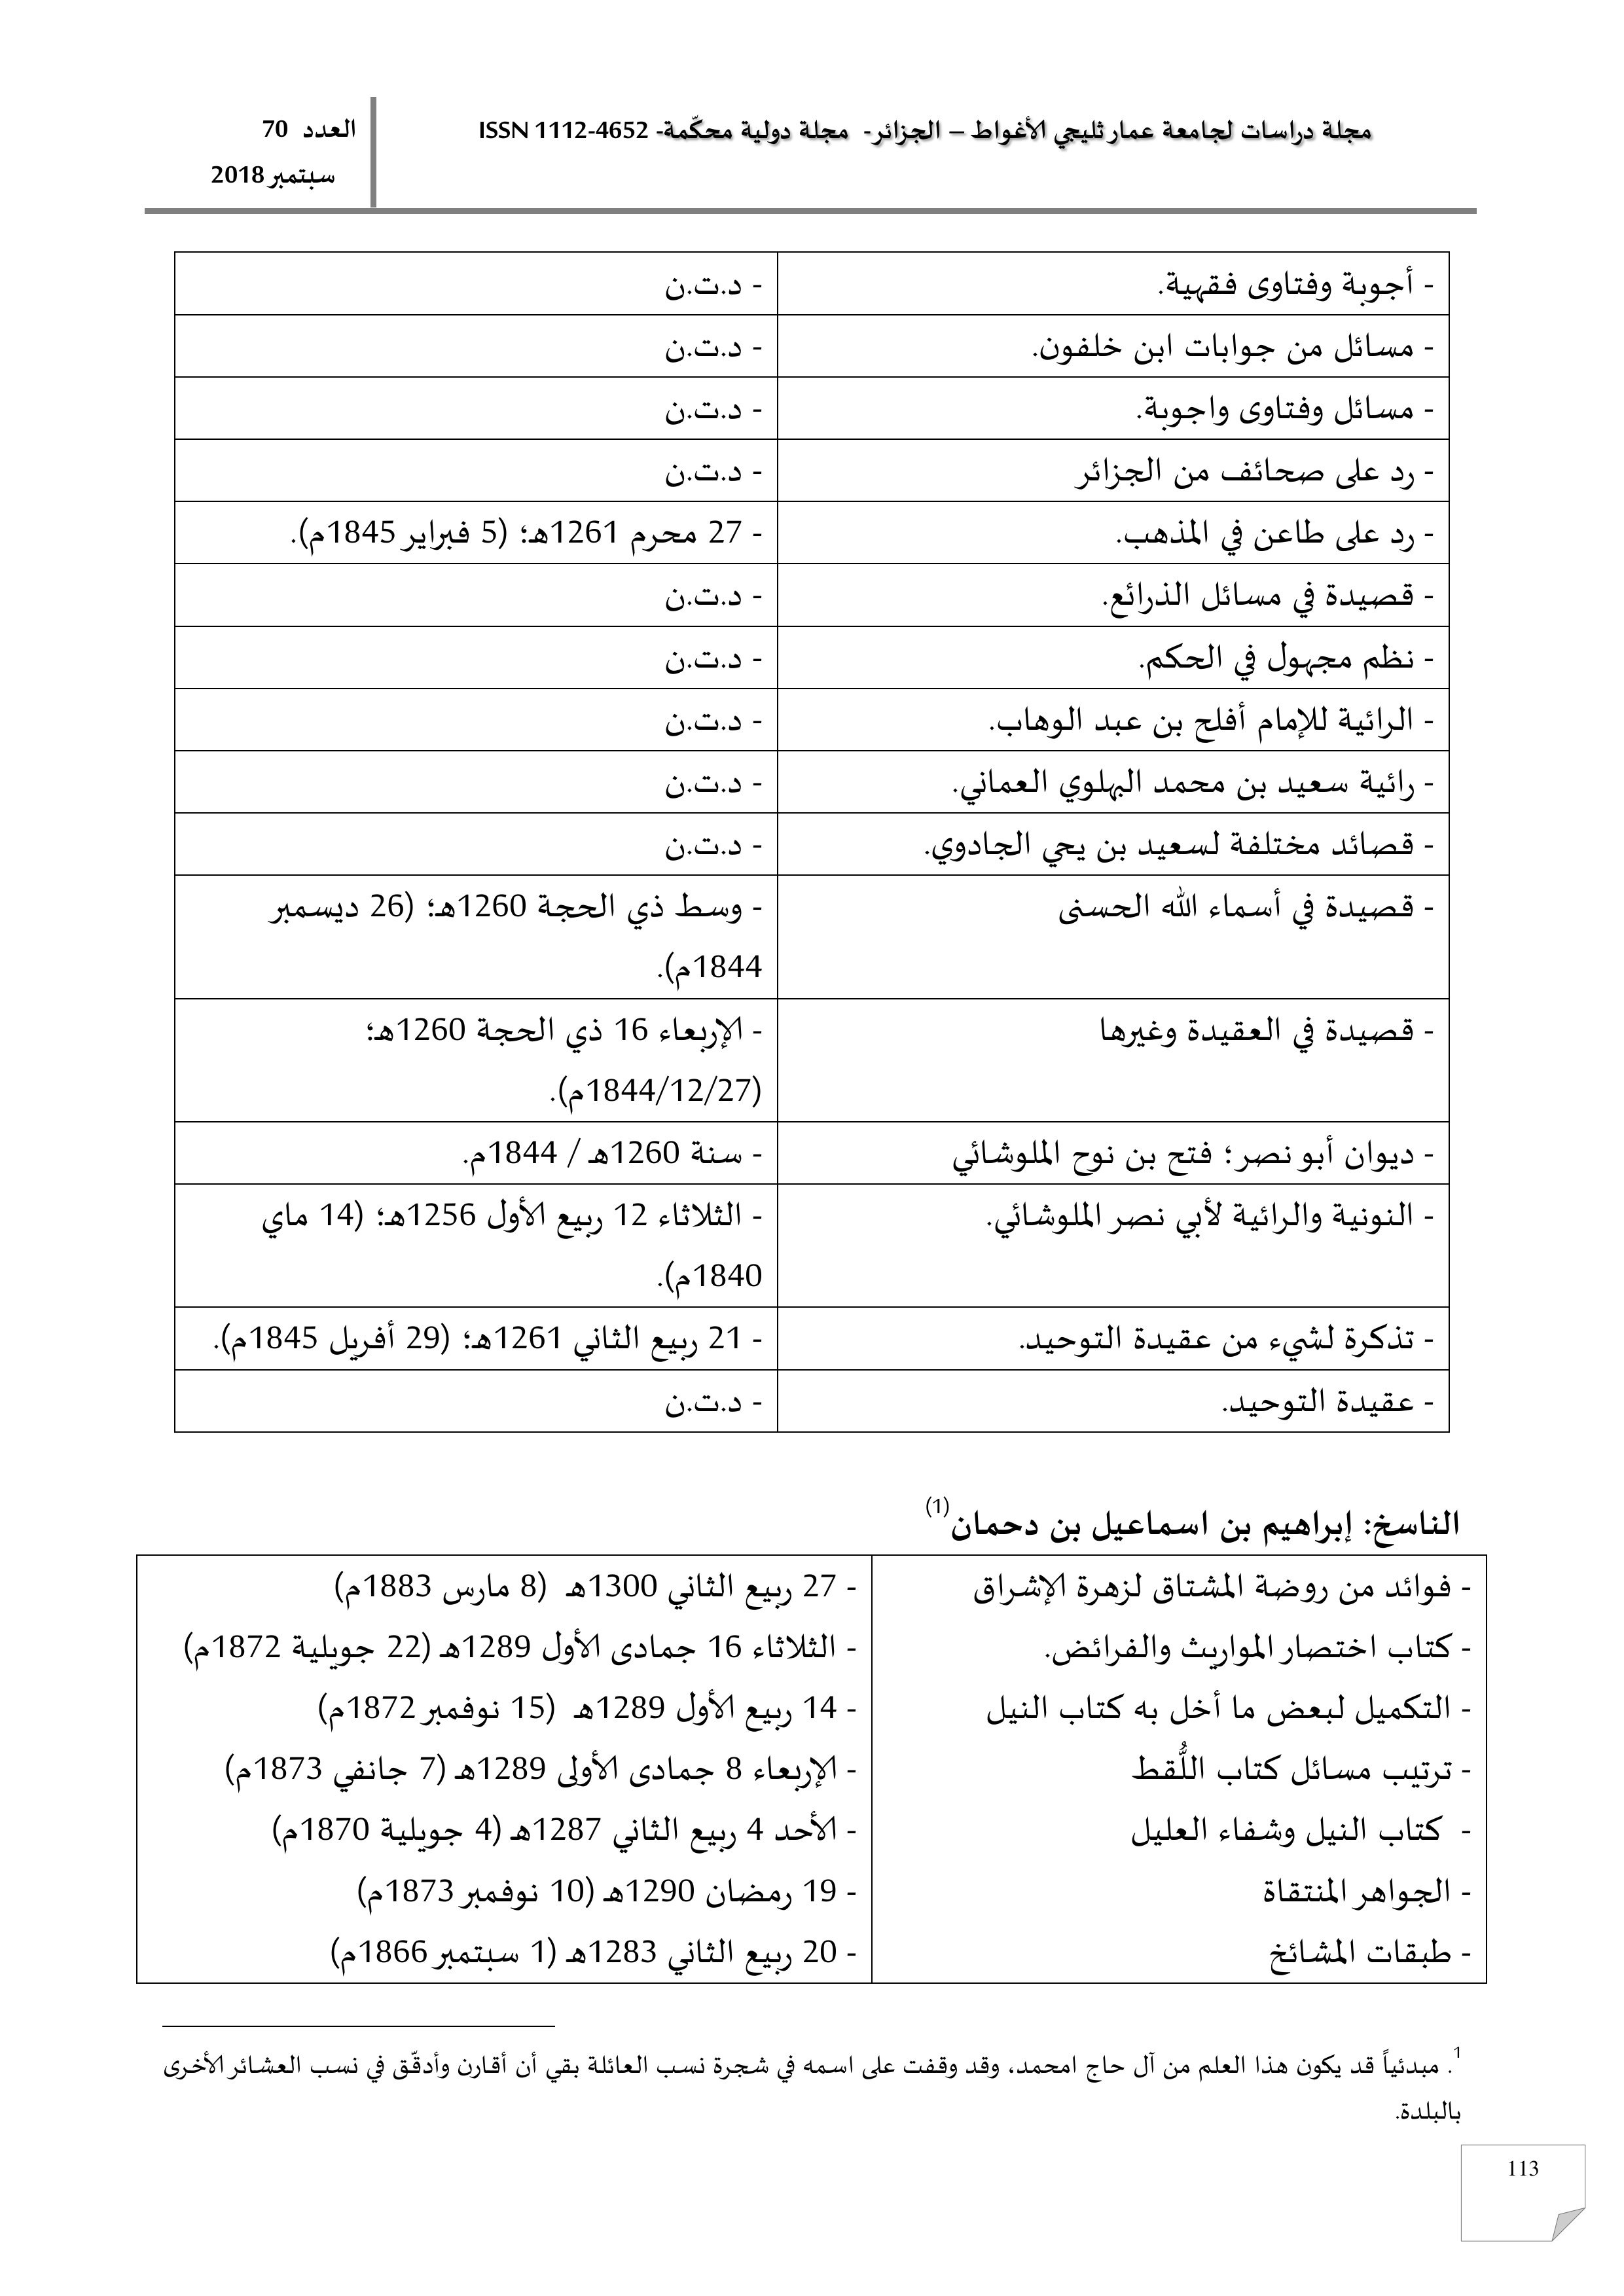 مجلة دراسات لجامعة عمار ثليجي الأغواط – الجزائر- مجلة دولية محكّمة- ISSN 1112-4652
العدد 70
سبتمبر 2018
- أجوبة وفتاوى فقهية. - د.ت.ن
- مسائل من جوابات ابن خلفون. - د.ت.ن
- مسائل وفتاوى واجوبة. - د.ت.ن
- رد على صحائف من الجزائر - د.ت.ن
- رد على طاعن في المذهب. - 27 محرم 1261هـ؛ (5 فبراير 1845م).
- قصيدة في مسائل الذرائع. - د.ت.ن
- نظم مجهول في الحكم. - د.ت.ن
- الرائية للإمام أفلح بن عبد الوهاب. - د.ت.ن
- رائية سعيد بن محمد البهلوي العماني. - د.ت.ن
- قصائد مختلفة لسعيد بن يحي الجادوي. - د.ت.ن
- قصيدة في أسماء الله الحسنى - وسط ذي الحجة 1260هـ؛ (26 ديسمبر
1844م).
- قصيدة في العقيدة وغيرها - الإربعاء 16 ذي الحجة 1260هـ؛
(1844/12/27م).
- ديوان أبو نصر؛ فتح بن نوح الملوشائي - سنة 1260هـ / 1844م.
- النونية والرائية لأبي نصر الملوشائي. - الثلاثاء 12 ربيع الأول 1256هـ؛ (14 ماي
1840م).
- تذكرة لشيء من عقيدة التوحيد. - 21 ربيع الثاني 1261هـ؛ (29 أفريل 1845م).
- عقيدة التوحيد. - د.ت.ن
الناسخ: إبراهيم بن اسماعيل بن دحمان(1)
- فوائد من روضة المشتاق لزهرة الإشراق - 27 ربيع الثاني 1300هـ (8 مارس 1883م)
- كتاب اختصار المواريث والفرائض. - الثلاثاء 16 جمادى الأول 1289هـ (22 جويلية 1872م)
- التكميل لبعض ما أخل به كتاب النيل - 14 ربيع الأول 1289هـ (15 نوفمبر 1872م)
- ترتيب مسائل كتاب اللُّقط - الإربعاء 8 جمادى الأولى 1289هـ (7 جانفي 1873م)
- كتاب النيل وشفاء العليل - الأحد 4 ربيع الثاني 1287هـ (4 جويلية 1870م)
- الجواهر المنتقاة - 19 رمضان 1290هـ (10 نوفمبر 1873م)
- طبقات المشائخ - 20 ربيع الثاني 1283هـ (1 سبتمبر 1866م)
1. مبدئياً قد يكون هذا العلم من آل حاج امحمد، وقد وقفت على اسمه في شجرة نسب العائلة بقي أن أقارن وأدقّق في نسب العشائر الأخرى
بالبلدة.
113